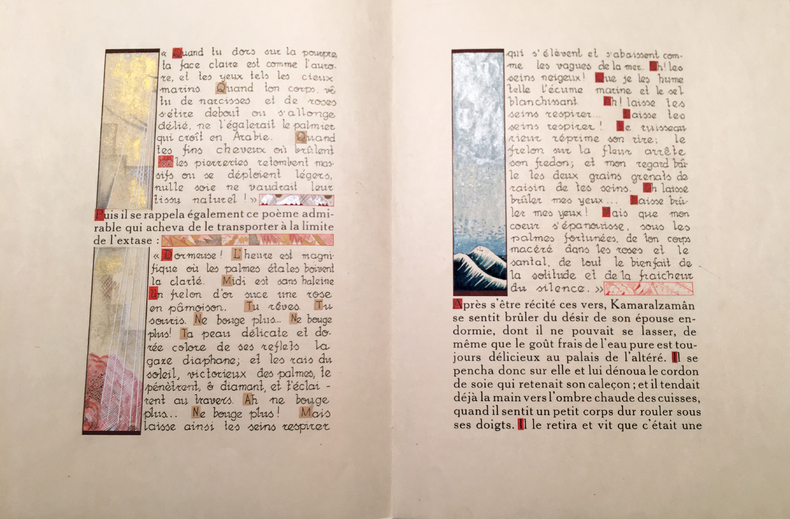 « Quand tu dors sur la pourpre,
ta face claire est comme l'auro-
re, et tes yeux tels les cieux
marins. Quand ton corps, vê-
tu de narcisses et de roses
s'étire debout ou s'allonge
délié, ne l'égalerait le palmier
qui croît en Arabie. Quand
tes fins cheveux où brûlent
les pierreries retombent mas-
sifs ou se déploient légers,
nulle soie ne vaudrait leur
tissu naturel ! »
Puis il se rappela également ce poème admi-
rable qui acheva de le transporter à la limite
de l'extase :
« Dormeuse ! L'heure est magni-
fique où les palmes étales boivent
la clarté. Midi est sans haleine
Un frelon d'or suce une rose
en pâmoison. Tu rêves. Tu
souris. Ne bouge plus... Ne bouge
plus! Ta peau délicate et do-
rée colore de ses reflets la
gaze diaphane; et les rais du
soleil, victorieux des palmes, te
pénètrent, ô diamant, et t'éclai -
rent au travers. Ah ne bouge
plus... Ne bouge plus ! Mais
laisse ainsi tes seins respirer
qui s'élèvent et s'abaissent com-
me les vagues de la mer. Oh! tes
seins neigeux! Que je les hume
telle l'écume marine et le sel
blanchissant. Ah! laisse tes
seins respirer... Laisse tes
seins respirer ! Le ruisseau
rieur réprime son rire; le
frelon sur la fleur arrête
son fredon; et mon regard brû-
le les deux grains grenats de
raisin de tes seins. Oh laisse
brûler mes yeux... Laisse brû-
ler mes yeux ! Mais que mon
coeur s'épanouisse, sous les
palmes fortunées, de ton corps
macéré dans les roses et le
santal, de tout le bienfait de
la solitude et de la fraîcheur
du silence. »
Après s'être récité ces vers, Kamaralzamân
se sentit brûler du désir de son épouse en-
dormie, dont il ne pouvait se lasser, de
même que le goût frais de l'eau pure est tou-
jours délicieux au palais de l'altéré. Il se
pencha donc sur elle et lui dénoua le cordon
de soie qui retenait son caleçon ; et il tendait
déjà la main vers l'ombre chaude des cuisses,
quand il sentit un petit corps dur rouler sous
ses doigts. Il le retira et vit que c'était une